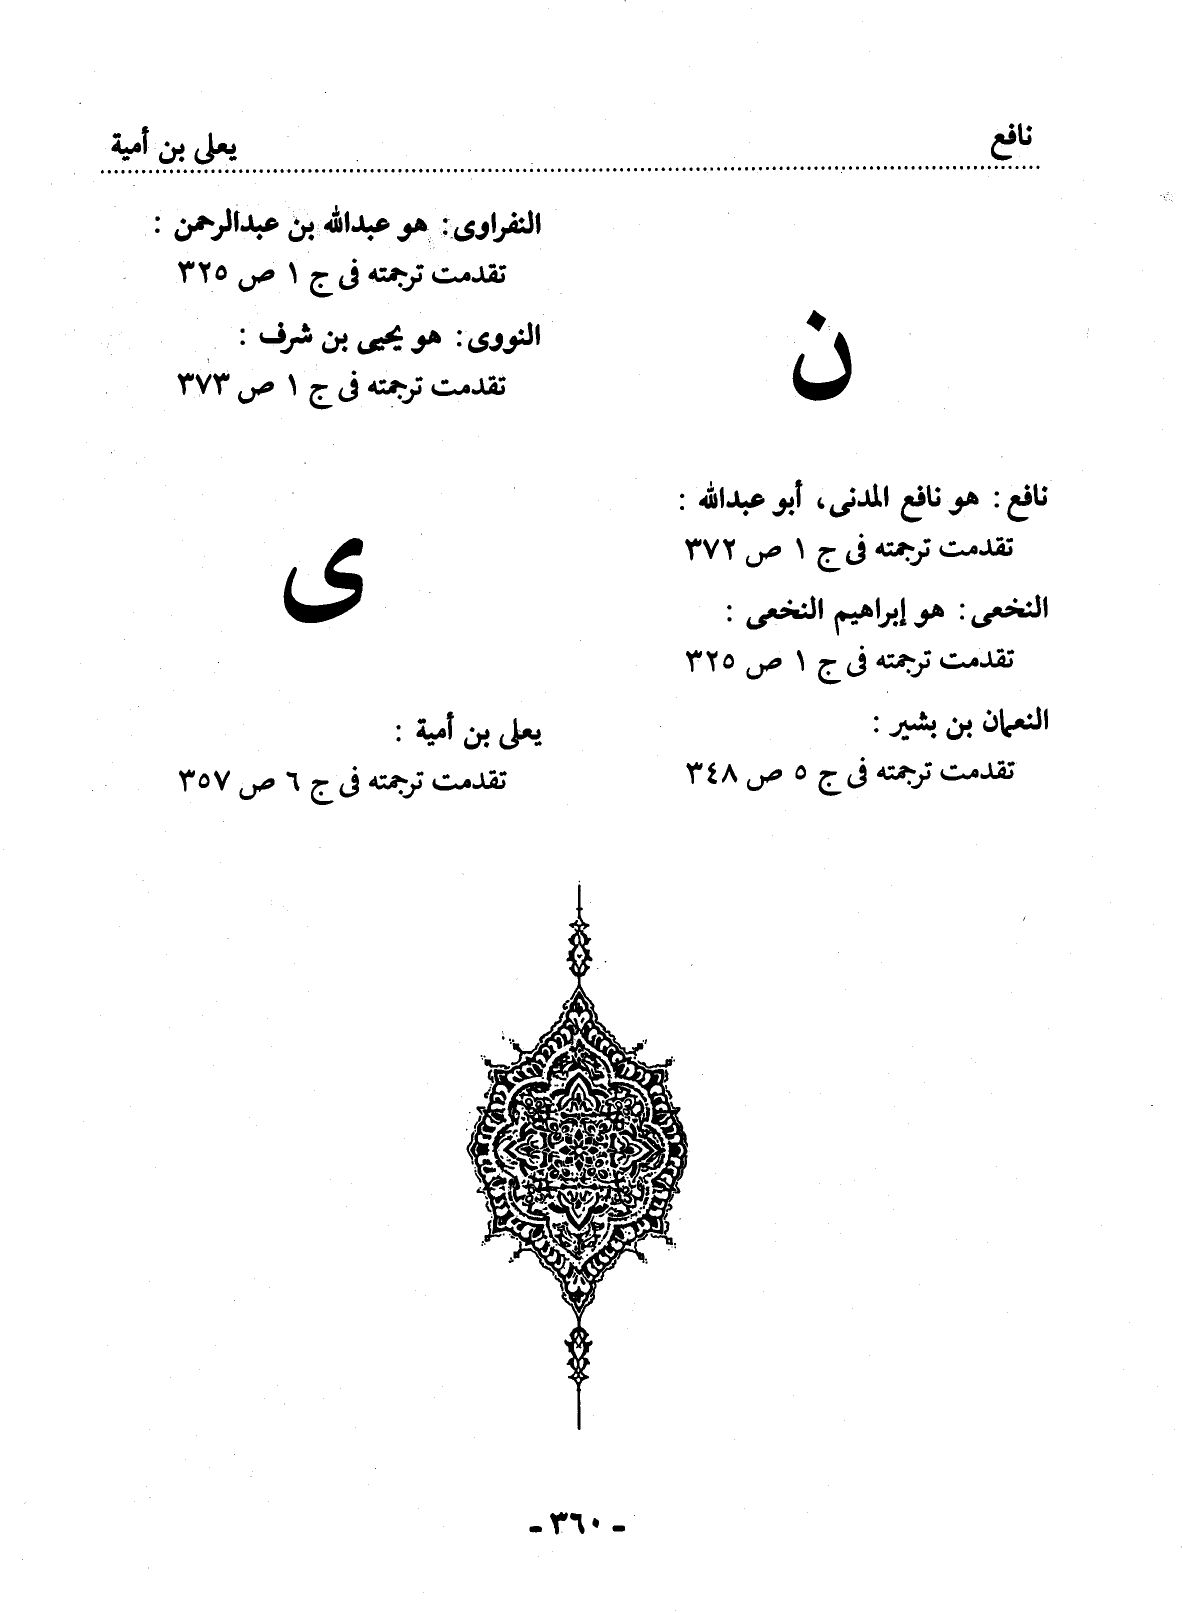 نافع
يعلى بن أمية
ن
نافع: هو نافع المدنى، أبو عبدالله :
تقدمت ترجمته فى ج ١ ص ٣٧٢
النخعى: هو إبراهيم النخعى :
تقدمت ترجمته فى ج ١ ص ٣٢٥
النعمان بن بشير :
تقدمت ترجمته فى ج ٥ ص ٣٤٨
النفراوى: هو عبدالله بن عبدالرحمن :
تقدمت ترجمته فى ج ١ ص ٣٢٥
النووى: هو يحيى بن شرف :
تقدمت ترجمته فى ج ١ ص ٣٧٣
ى
يعلى بن أمية :
تقدمت ترجمته فى ج ٦ ص ٣٥٧
- ٣٦٠ -